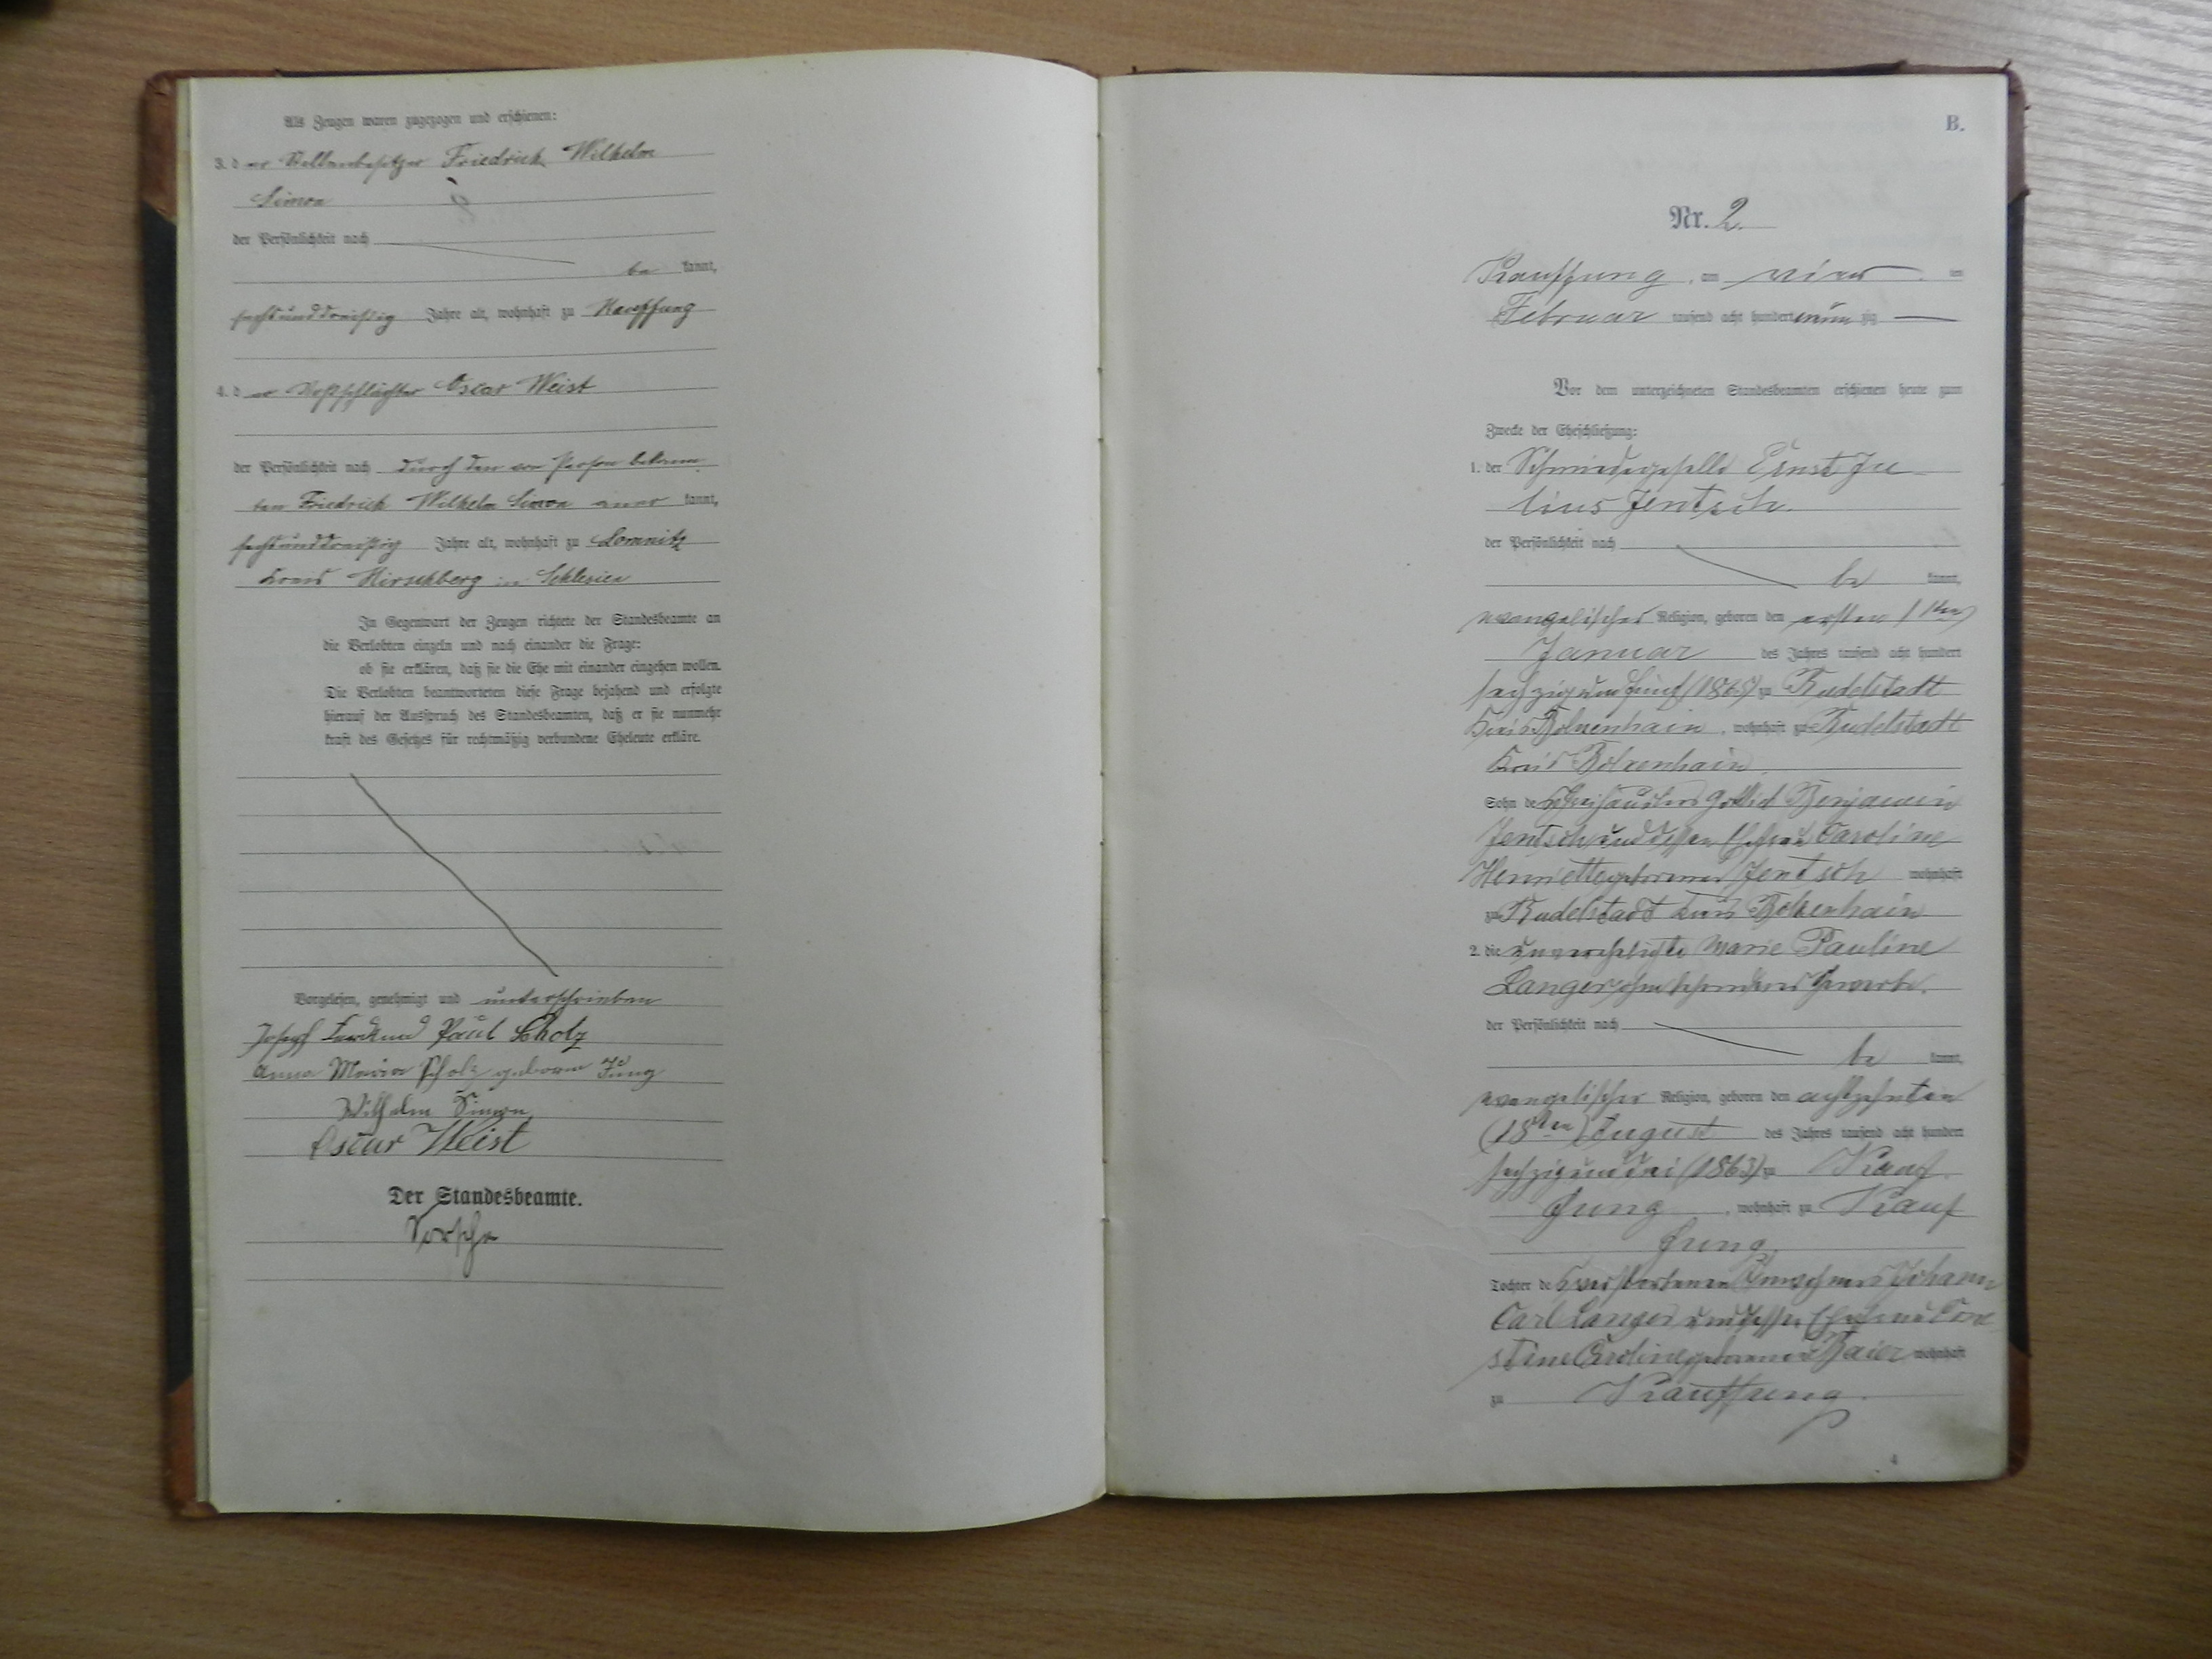 Als Zeugen waren zugezogen und erschienen:
3. der Stellenbesitzer Friedrich Wilhelm
Simon
der Persönlichkeit nach
be kannt,
sechsunddreißig Jahre alt, wohnhaft zu Kauffung
4. der Roßschlächter Oscar Weist
der Persönlichkeit nach durch den von Person bekann
ten Friedrich Wilhelm Simon aner kannt,
sechsunddreißig Jahre alt, wohnhaft zu Lomnitz
Kreis Hirschberg in Schlesien
In Gegenwart der Zeugen richtete der Standesbeamte an
die Verlobten einzeln und nach einander die Frage:
ob sie erklären, daß sie die Ehe mit einander eingehen wollen.
Die Verlobten beantworteten diese Frage bejahend und erfolgte
hierauf der Ausspruch des Standesbeamten, daß er sie nunmehr
kraft des Gesetzes für rechtmäßig verbundene Eheleute erkläre.
Vorgelesen, genehmigt und unterschrieben
Josef Ferdinand Paul Scholz
Anna Maria Scholz geborne Jung
Wilhelm Simon
Oscar Weist
Der Standesbeamte.
B.
Nr. 2.
Kauffung, am vier ten
Februar tausend acht hundert neun zig
Vor dem unterzeichneten Standesbeamten erschienen heute zum
Zwecke der Eheschließung:
1. der Schmiedegeselle Ernst Ju-
lius Jentsch.
der Persönlichkeit nach
be kannt,
evangelischer Religion, geboren den ersten (1ten)
Januar des Jahres tausend acht hundert
sechzig und fünf (1865) zu Rudelstadt
Kreis Bolkenhain, wohnhaft zu Rudelstadt
Kreis Bolkenhain,
Sohn des Freihäuslers Gottlieb Benjamin
Jentsch und dessen Ehefrau Caroline
Henriette geborener Jentsch wohnhaft
zu Rudelstadt Kreis Bolkenhain
2. die unverehelichte Marie Pauline
Langer, ohne besonderes Gewerbe.
der Persönlichkeit nach
be kannt,
evangelischer Religion, geboren den achtzehnten
(18ten) August des Jahres tausend acht hundert
sechzig und drei (1863) zu Kauf
fung, wohnhaft zu Kauf
fung,
Tochter des verstorbenen Johann
Carl Langer und dessen Ehefrau
Caroline geborener Baier wohnhaft
zu Kauffung.
4